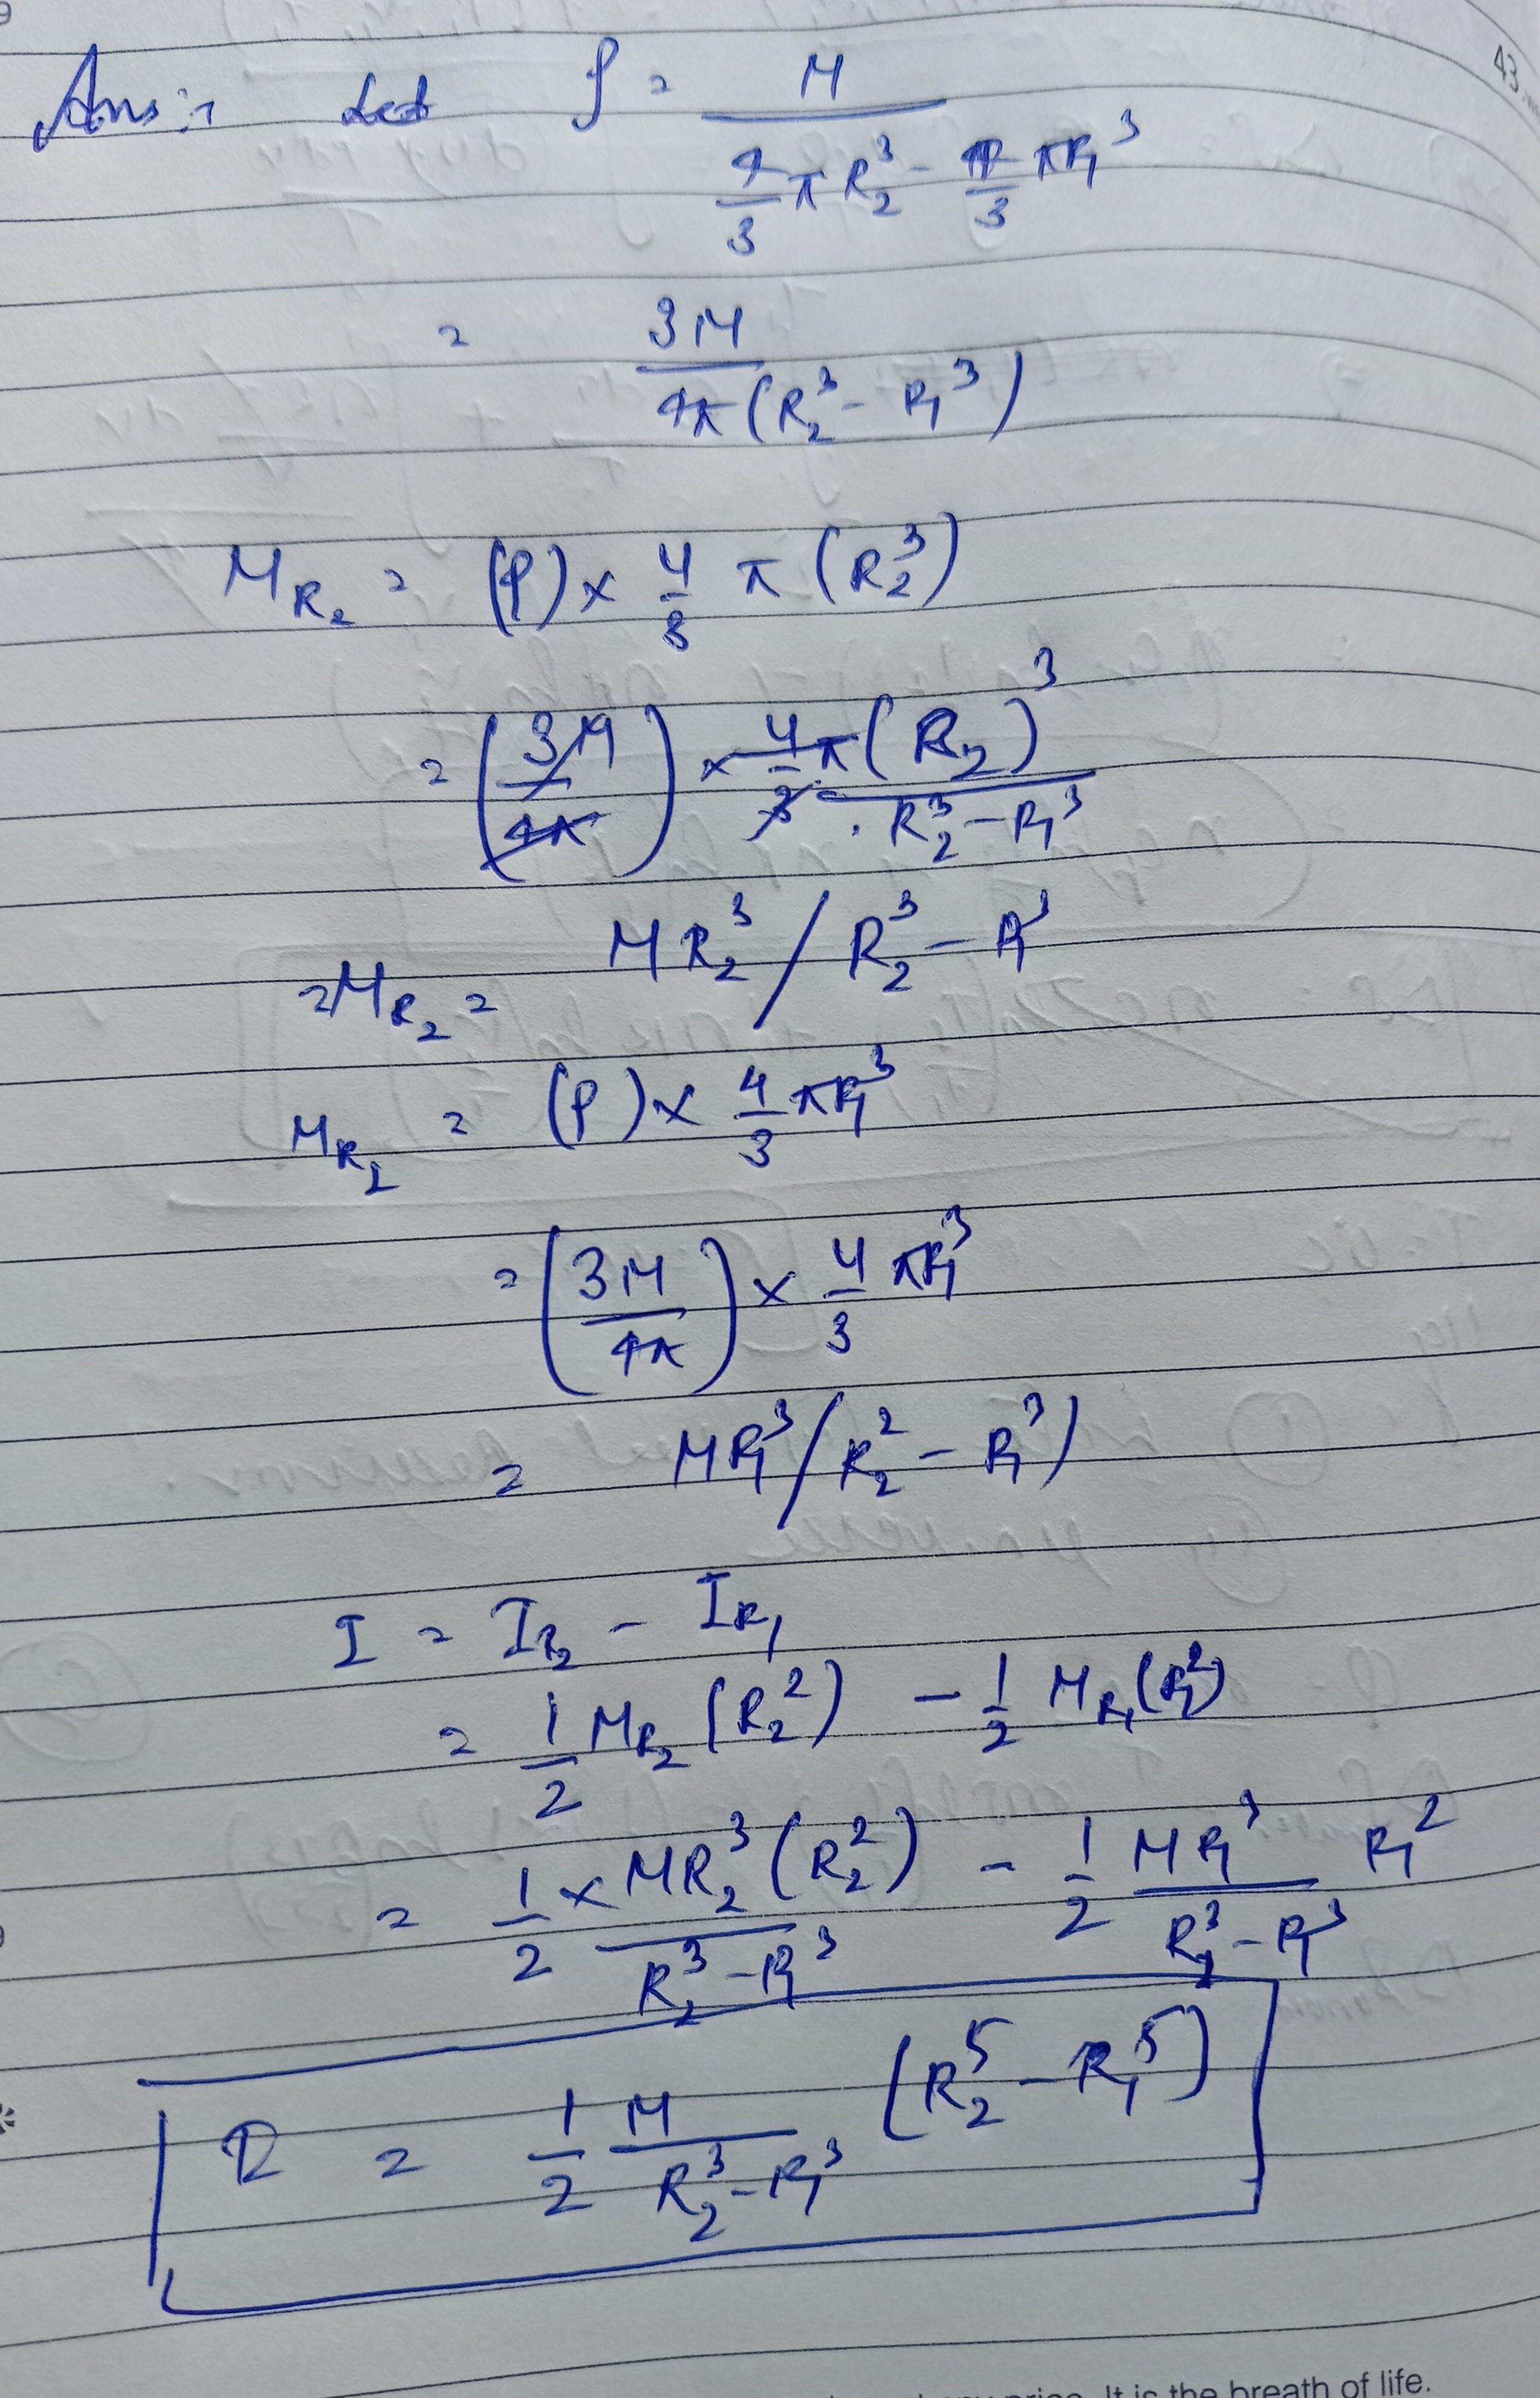 43
Ans :- Let ρ = M / (4/3 π R₂³ - 4/3 πR₁³)
= 3M / 4π(R₂³ - R₁³)
M_R₂ = (ρ) × 4/3 π (R₂³)
= (3M/4π) × 4/3 π(R₂)³ / R₂³ - R₁³
= M_R₂ = MR₂³ / R₂³ - R₁³
M_R₁ = (ρ) × 4/3 πR₁³
= (3M/4π) × 4/3 πR₁³
= MR₁³ / R₂² - R₁³)
I = I_R₂ - I_R₁
= 1/2 M_R₂ (R₂²) - 1/2 M_R₁(R₁²)
= 1/2 × MR₂³(R₂²) / R₂³ - R₁³ - 1/2 MR₁³ / R₂³ - R₁³ R₁²
I = 1/2 M / R₂³ - R₁³ (R₂⁵ - R₁⁵)
It is the breath of life.